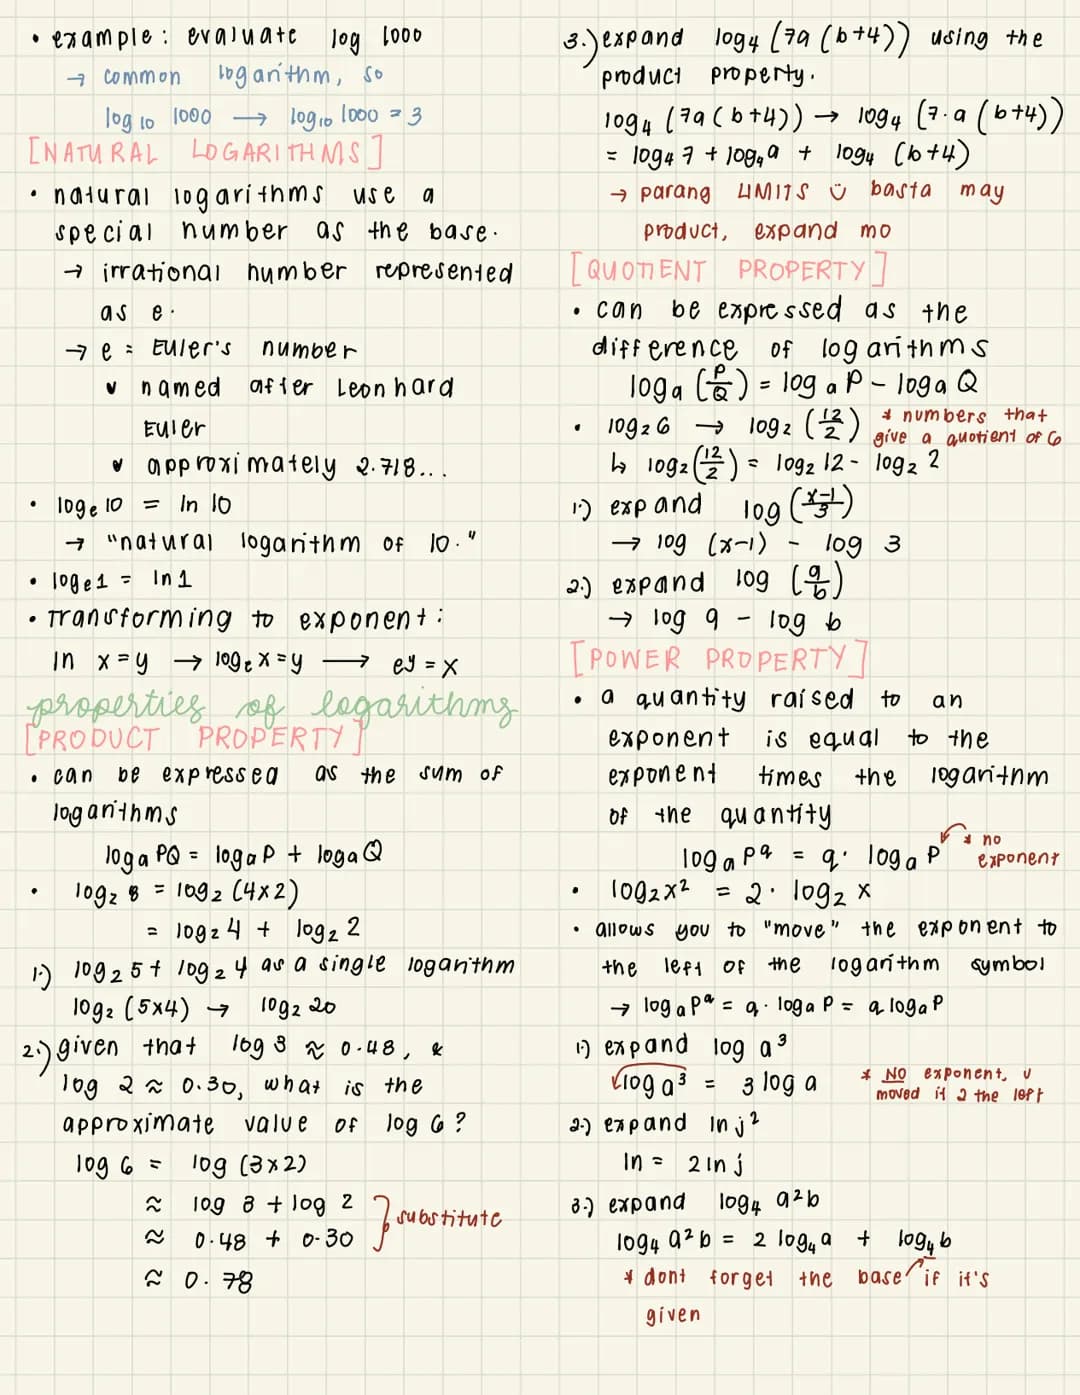 • example: evaluate log 1000
→ common logarithm, so
log₁₀ 1000 → log₁₀ 1000 = 3
[NATURAL LOGARITHMS]
• natural logarithms use a
special number as the base.
→ irrational number represented
as e.
→ e = Euler's number
✓ named after Leonhard
Euler
✓ approximately 2.718...
• logₑ 10 = ln 10
→ "natural logarithm of 10."
• logₑ 1 = ln 1
• Transforming to exponent:
ln x = y → logₑ x = y → eʸ = x
properties of logarithms
[PRODUCT PROPERTY]
• can be expressed as the sum of
logarithms
logₐ PQ = logₐ P + logₐ Q
• log₂ 8 = log₂ (4x2)
= log₂ 4 + log₂ 2
1.) log₂ 5 + log₂ 4 as a single logarithm
log₂ (5x4) → log₂ 20
2.) given that log 3 ≈ 0.48, &
log 2 ≈ 0.30, what is the
approximate value of log 6?
log 6 = log (3x2)
≈ log 3 + log 2
≈ 0.48 + 0.30
} substitute
≈ 0.78
3.) expand log₄ (7a (b+4)) using the
product property.
log₄ (7a (b+4)) → log₄ (7·a (b+4))
= log₄ 7 + log₄ a + log₄ (b+4)
→ parang LIMITS ü basta may
product, expand mo
[QUOTIENT PROPERTY]
• can be expressed as the
difference of logarithms
logₐ (P/Q) = logₐ P - logₐ Q
• log₂ 6 → log₂ (12/2) * numbers that
give a quotient of 6
↳ log₂ (12/2) = log₂ 12 - log₂ 2
1.) expand log (x-1/3)
→ log (x-1) - log 3
2.) expand log (9/b)
→ log 9 - log b
[POWER PROPERTY]
• a quantity raised to an
exponent is equal to the
exponent times the logarithm
of the quantity
logₐ P^q = q · logₐ P * no
exponent
• log₂ x² = 2 · log₂ x
• allows you to "move" the exponent to
the left of the logarithm symbol
→ logₐ P^q = q · logₐ P = q logₐ P
1.) expand log a³
log a³ = 3 log a
* NO exponent, u
moved it 2 the left
2.) expand ln j²
ln = 2 ln j
3.) expand log₄ a²b
log₄ a²b = 2 log₄ a + log₄ b
* dont forget the base if it's
given